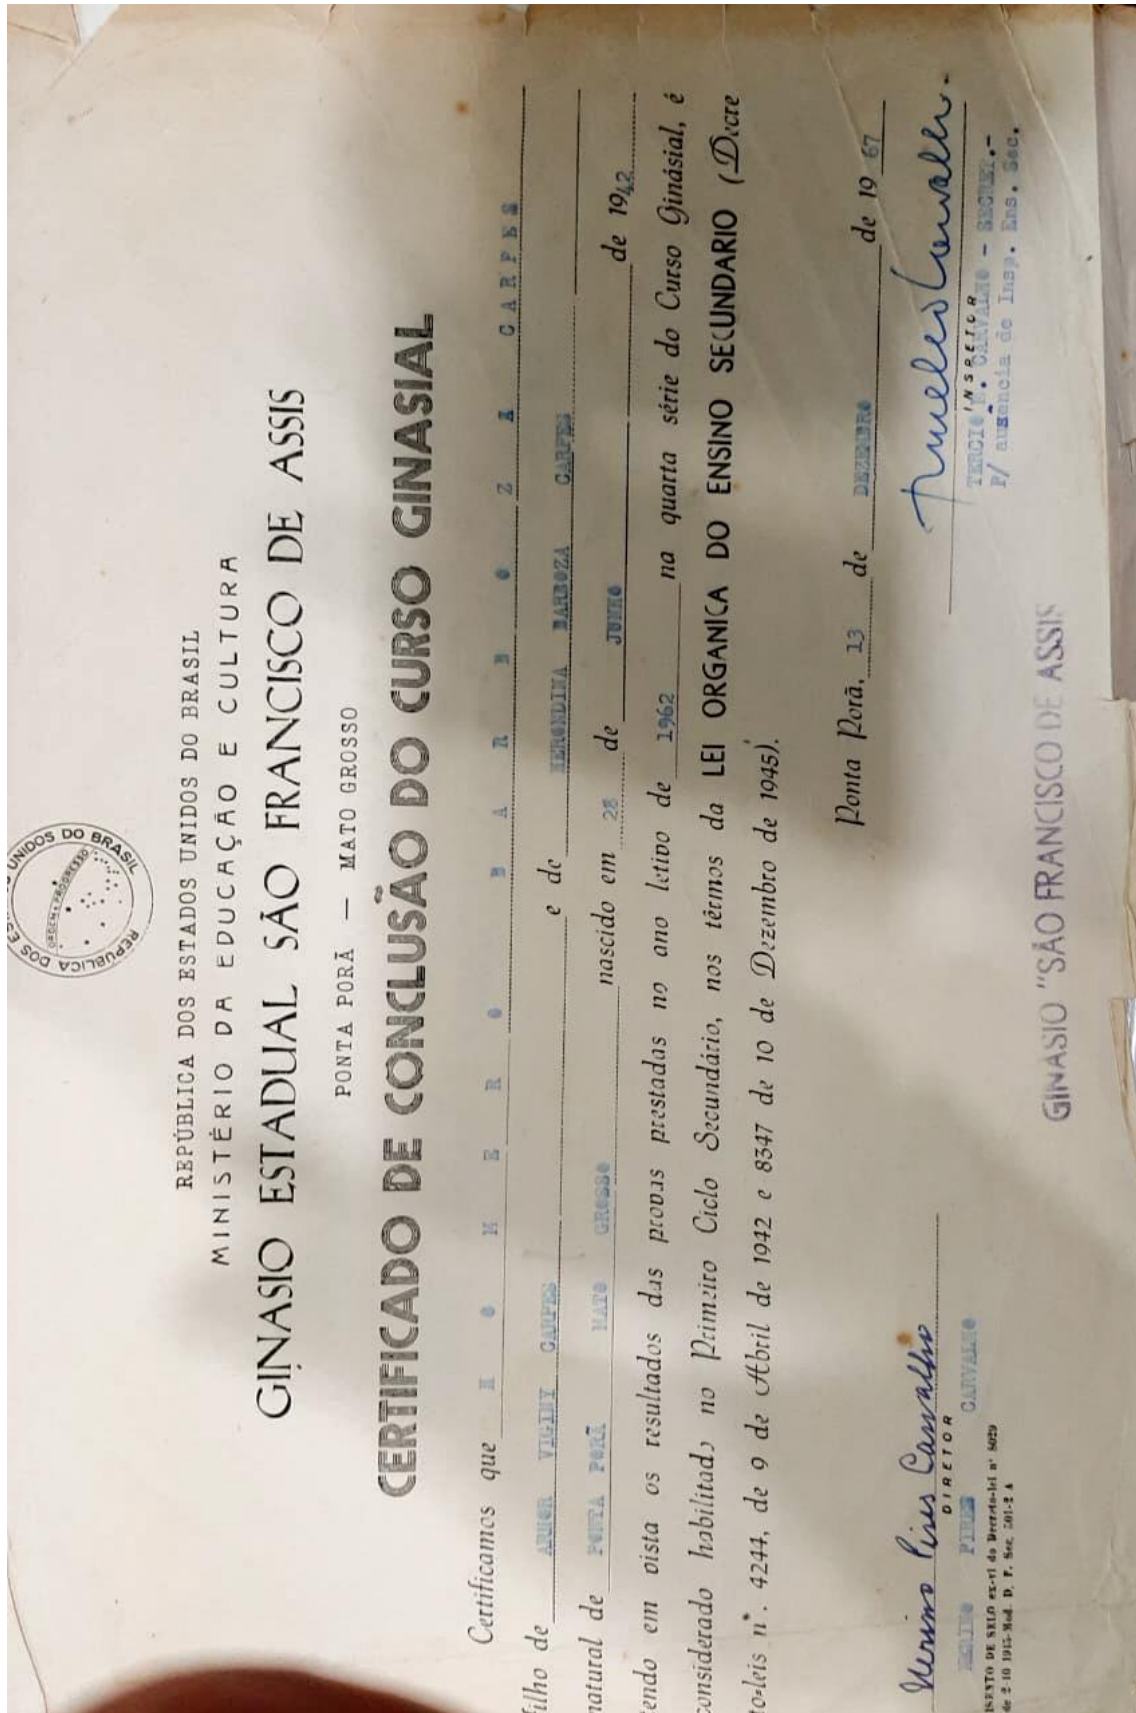 UNIDOS DO BRASIL
ORDEM E PROGRESSO
REPUBLICA DOS
REPÚBLICA DOS ESTADOS UNIDOS DO BRASIL
MINISTÉRIO DA EDUCAÇÃO E CULTURA
GINASIO ESTADUAL SÃO FRANCISCO DE ASSIS
PONTA PORÃ — MATO GROSSO
CERTIFICADO DE CONCLUSÃO DO CURSO GINASIAL
Certificamos que H O M E R O B A R B O Z A C A R P E S
filho de VIGINY CARPES e de BARBOZA CARPES
natural de PONTA PORÃ MATO GROSSO nascido em 28 de JUNHO de 1942
tendo em vista os resultados das provas prestadas no ano letivo de 1962 na quarta série do Curso Ginásial, é
considerado habilitado no Primeiro Ciclo Secundário, nos têrmos da LEI ORGANICA DO ENSINO SECUNDARIO (Decre
to-leis nº. 4244, de 9 de Abril de 1942 e 8347 de 10 de Dezembro de 1945).
Ponta Porã, 13 de DEZEMBRO de 19 67
Nerino Pires Carvalho
DIRETOR
NERINO PIRES CARVALHO
ISENTO DE SELO ex-vi do Decreto-lei nº 8029
INSPETOR
TERCIO P. CARVALHO - SECRET.-
P/ ausência de Insp. Ens. Sec.
GINASIO "SÃO FRANCISCO DE ASSIS